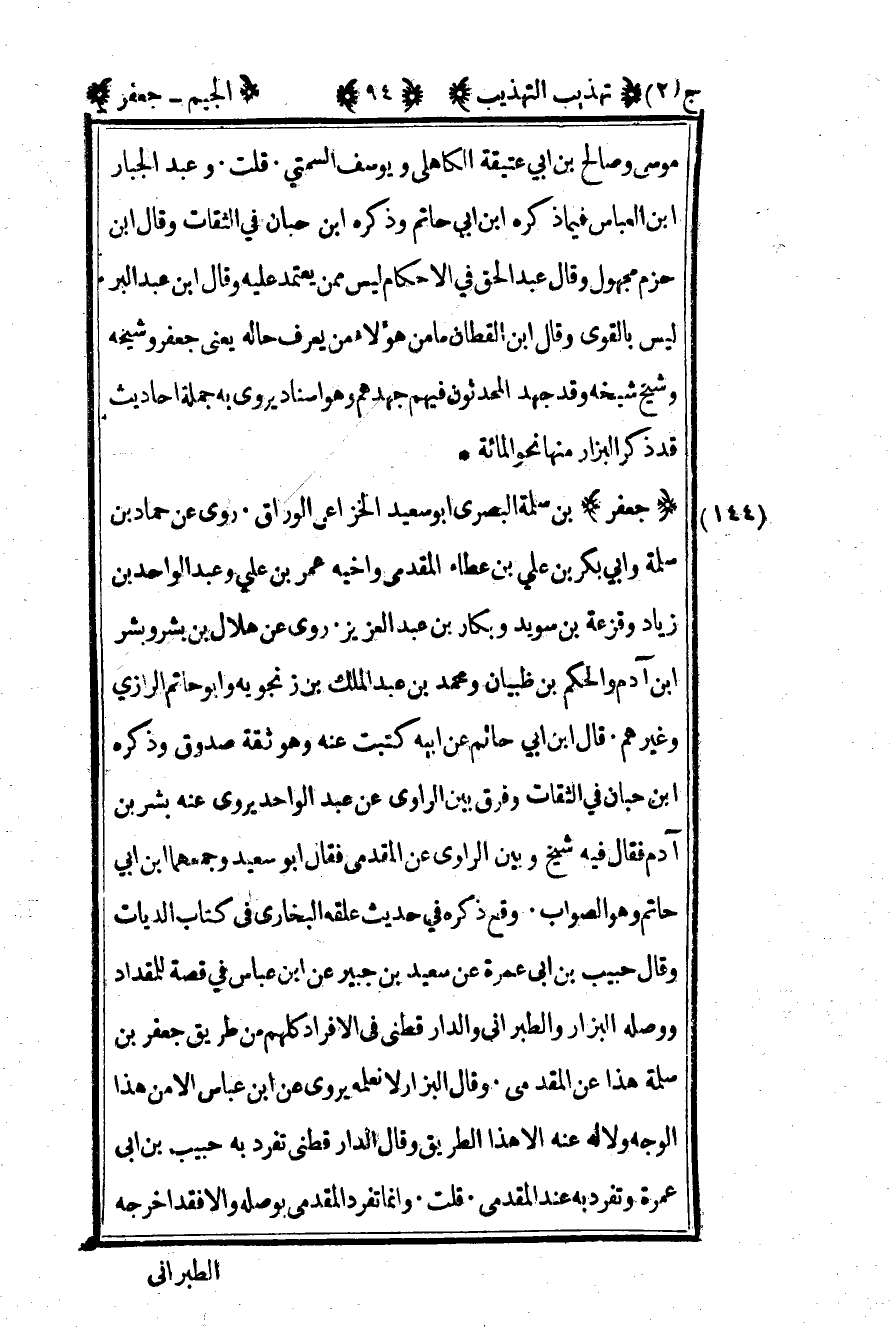 ج (٢) ﴿ تهذيب التهذيب ﴾ ﴿ ٩٤ ﴾ ﴿ الجيم - جعفر ﴾
موسى وصالح بن ابي عتيقة الكاهلى ويوسف السمتي · قلت · وعبد الجبار
ابن العباس فيماذكره ابن ابي حاتم وذكره ابن حبان في الثقات وقال ابن
حزم مجهول وقال عبدالحق في الاحكام ليس ممن يعتمد عليه وقال ابن عبدالبر
ليس بالقوى وقال ابن القطان مامن هؤلاء من يعرف حاله يعنى جعفر وشيخه
وشيخ شيخه وقد جهد المحدثون فيهم جهدهم وهواسناد يروى به جملة احاديث
قدذكر البزار منها نحو المائة *
(١٤٤) ﴿ جعفر ﴾ بن سلمة البصرى ابوسعيد الخزاعى الوراق · روى عن حماد بن
سلمة وابي بكر بن علي بن عطاء المقدمى واخيه عمر بن علي وعبد الواحد بن
زياد وقزعة بن سويد وبكار بن عبد العزيز · روى عن هلال بن بشر وبشر
ابن آدم والحكم بن ظبيان ومحمد بن عبدالملك بن زنجويه وابو حاتم الرازي
وغيرهم · قال ابن ابي حاتم عن ابيه كتبت عنه وهو ثقة صدوق وذكره
ابن حبان في الثقات وفرق بين الراوى عن عبد الواحد يروى عنه بشر بن
آدم فقال فيه شيخ وبين الراوى عن المقدمى فقال ابو سعيد وجمعهما ابن ابي
حاتم وهو الصواب · وقع ذكره في حديث علقه البخارى فى كتاب الديات
وقال حبيب بن ابى عمرة عن سعيد بن جبير عن ابن عباس في قصة للمقداد
ووصله البزار والطبرانى والدار قطنى فى الافراد كلهم من طريق جعفر بن
سلمة هذا عن المقدمى · وقال البزار لانعلمه يروى عن ابن عباس الا من هذا
الوجه ولاله عنه الا هذا الطريق وقال الدار قطنى تفرد به حبيب بن ابى
عمرة وتفرد به عند المقدمى · قلت · وانما تفرد المقدمى بوصله والا فقد اخرجه
الطبرانى